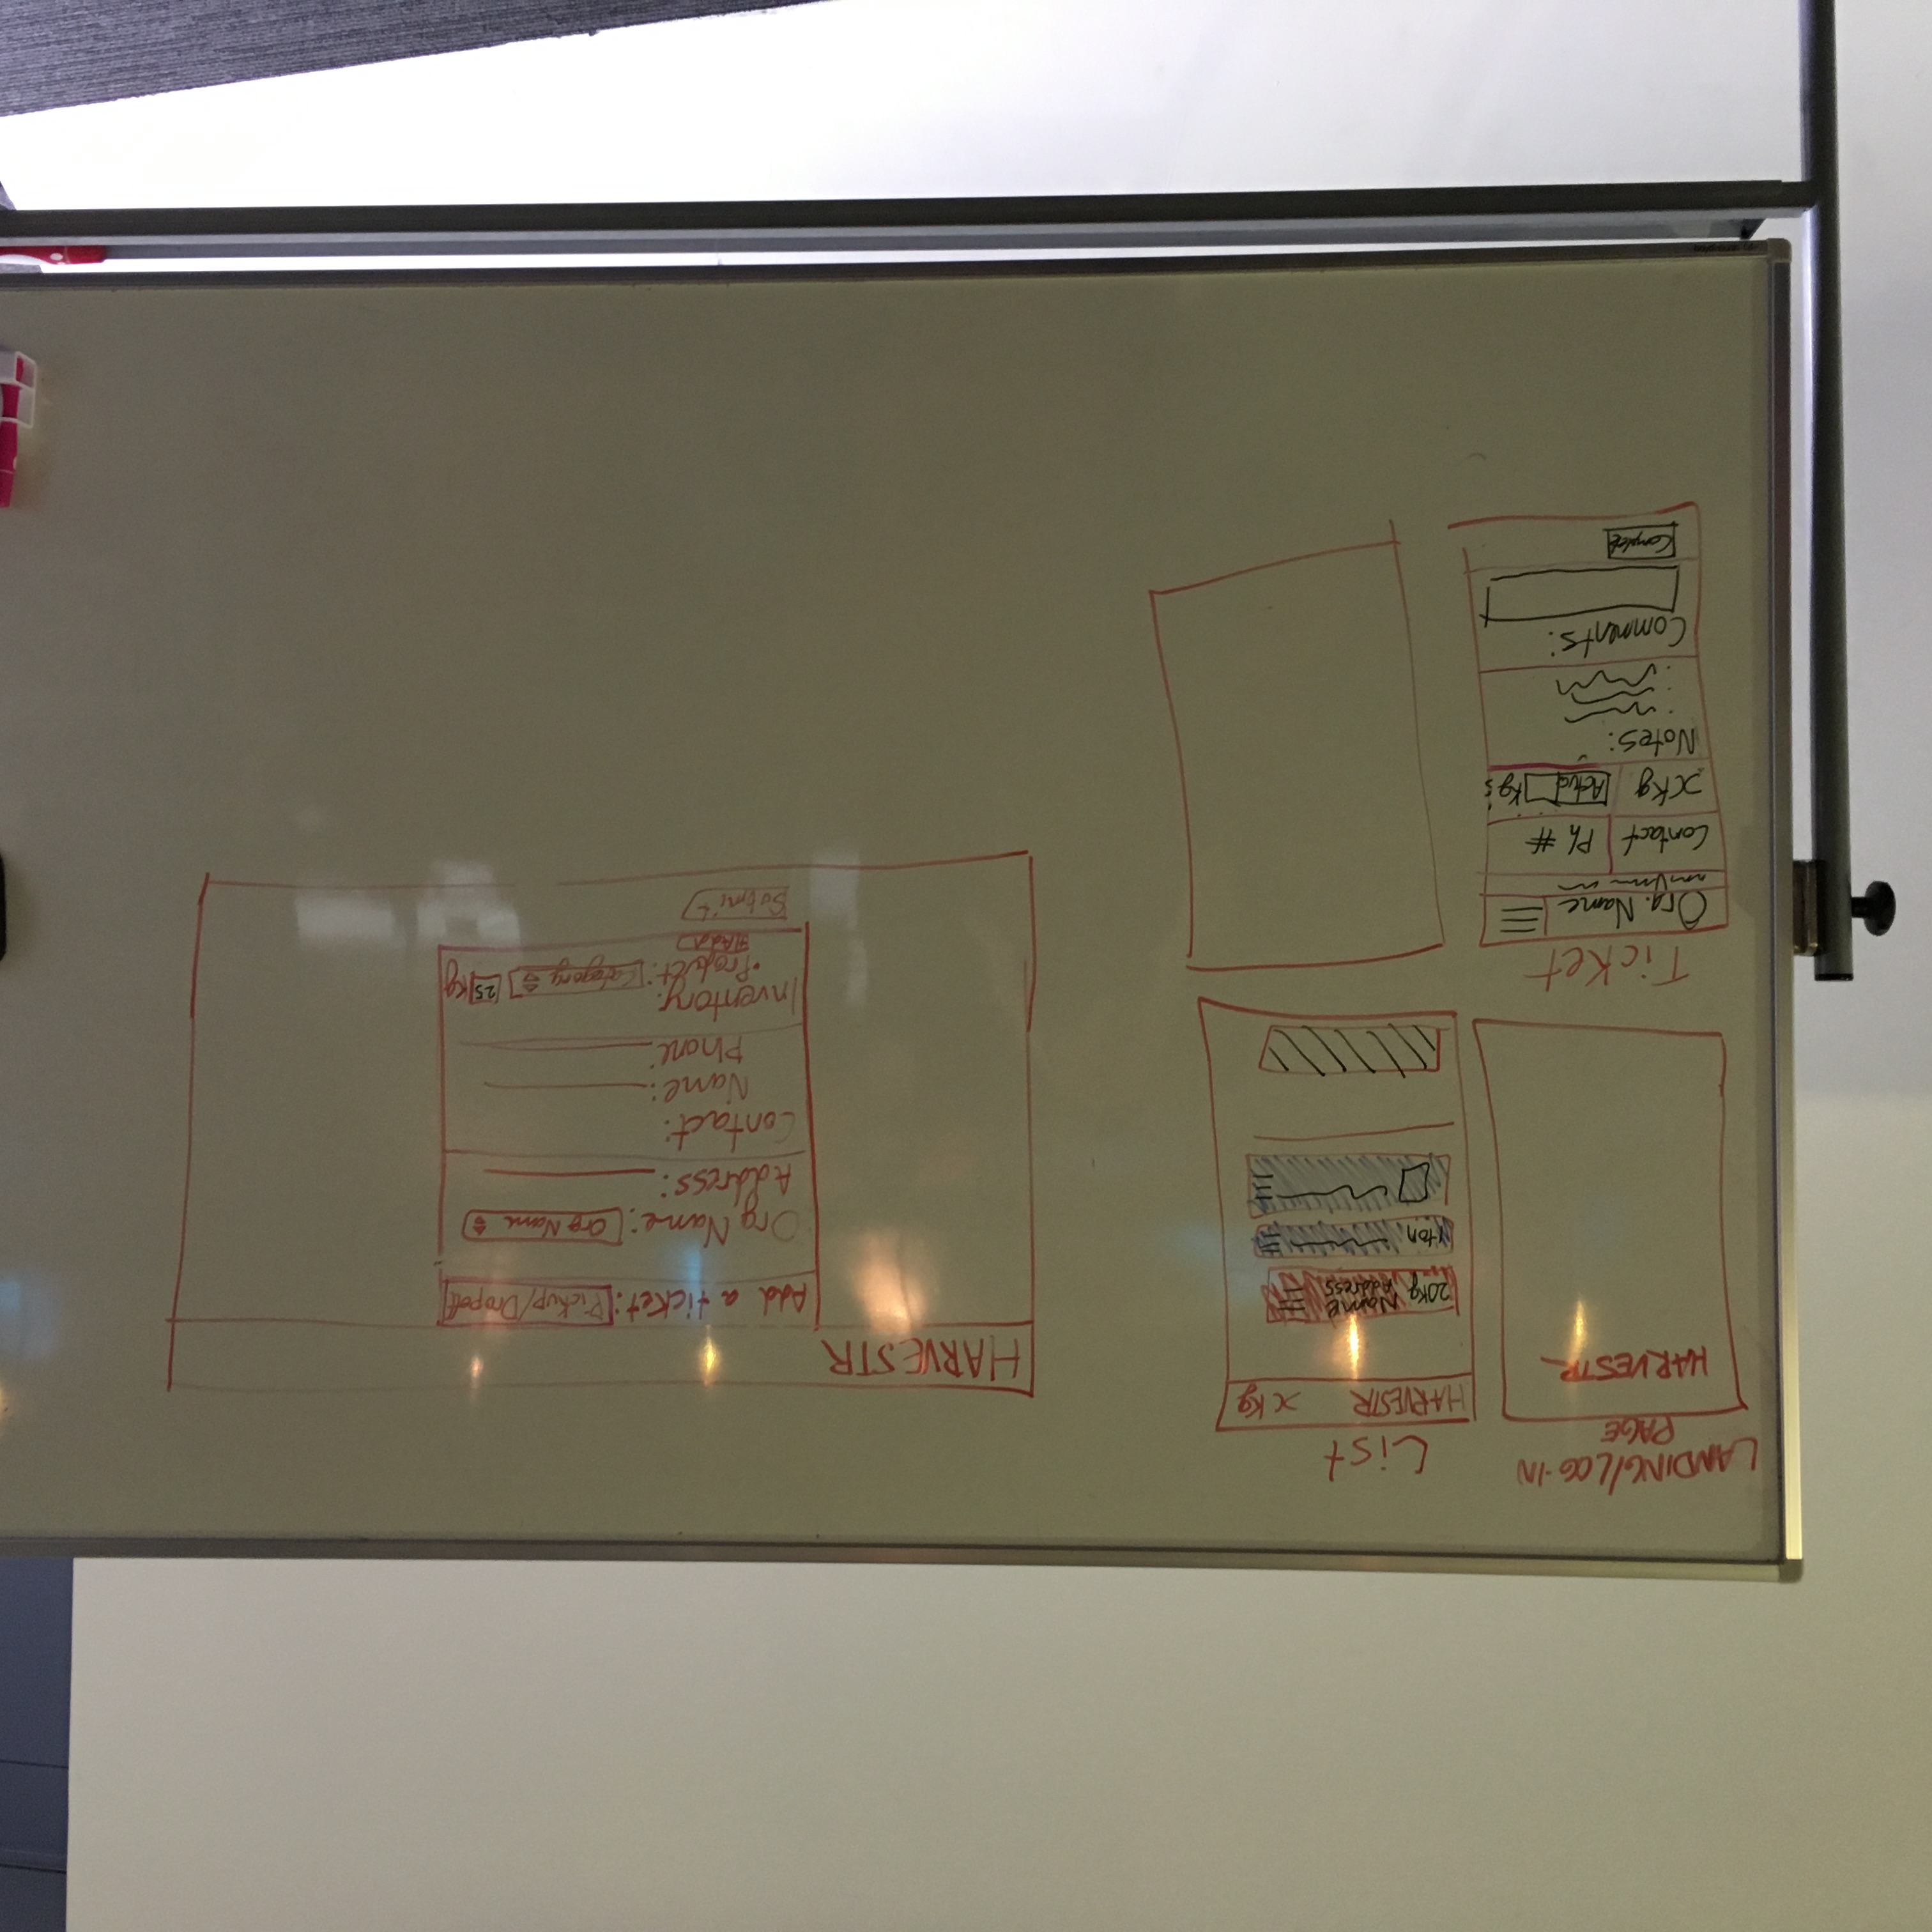 LANDING/LOG-IN
PAGE
HARVESTR
List
HARVESTR x Kg
20Kg Name
Address
1 ton
Ticket
Org. Name
Contact Ph #
xKg Actual Kg's
Notes:
Comments:
Complete
HARVESTR
Add a ticket: Pickup/Dropoff
Org Name: Org Name
Address:
Contact:
Name:
Phone:
Inventory:
• Product: Category 25 Kg
+Add
Submit